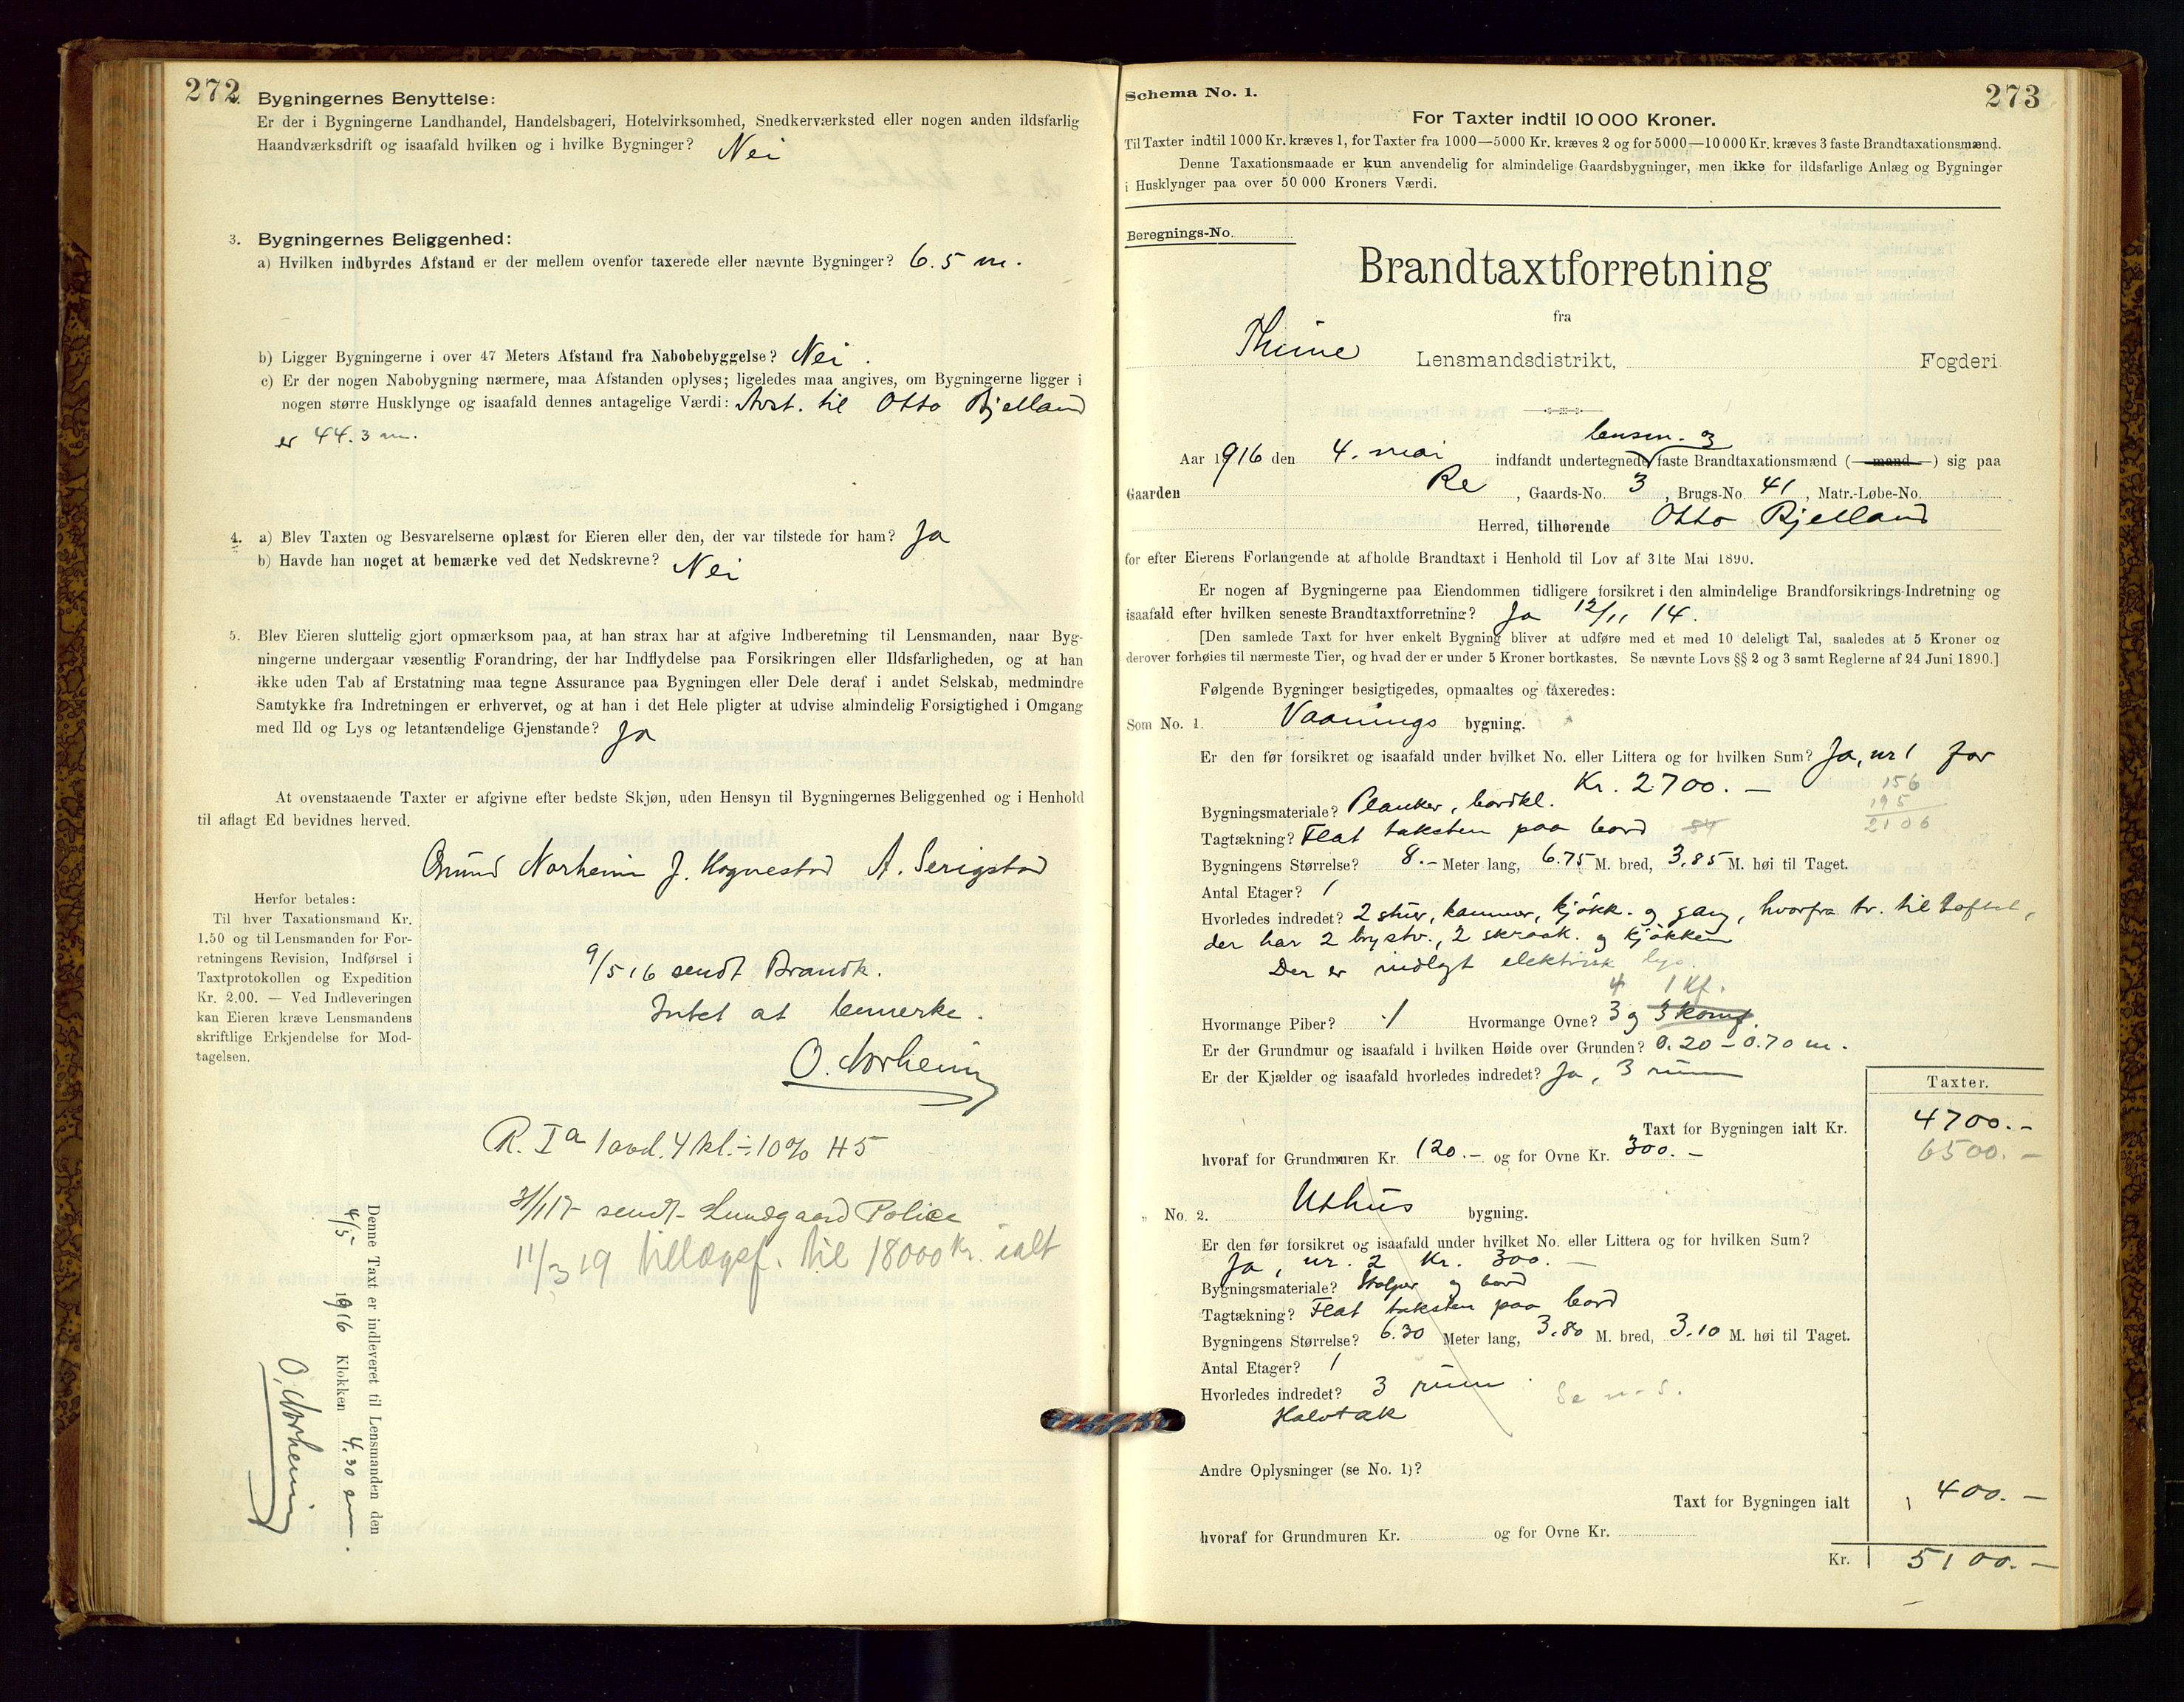 272
Bygningernes Benyttelse:
Er der i Bygningerne Landhandel, Handelsbageri, Hotelvirksomhed, Snedkerværksted eller nogen anden ildsfarlig
Haandværksdrift og isaafald hvilken og i hvilke Bygninger? Nei
3. Bygningernes Beliggenhed:
a) Hvilken indbyrdes Afstand er der mellem ovenfor taxerede eller nævnte Bygninger? 6.5 m.
b) Ligger Bygningerne i over 47 Meters Afstand fra Nabobebyggelse? Nei.
c) Er der nogen Nabobygning nærmere, maa Afstanden oplyses; ligeledes maa angives, om Bygningerne ligger i
nogen større Husklynge og isaafald dennes antagelige Værdi: Avst. til Otto Bjelland
er 44.3 m.
4. a) Blev Taxten og Besvarelserne oplæst for Eieren eller den, der var tilstede for ham? Ja
b) Havde han noget at bemærke ved det Nedskrevne? Nei
5. Blev Eieren sluttelig gjort opmærksom paa, at han strax har at afgive Indberetning til Lensmanden, naar Byg-
ningerne undergaar væsentlig Forandring, der har Indflydelse paa Forsikringen eller Ildsfarligheden, og at han
ikke uden Tab af Erstatning maa tegne Assurance paa Bygningen eller Dele deraf i andet Selskab, medmindre
Samtykke fra Indretningen er erhvervet, og at han i det Hele pligter at udvise almindelig Forsigtighed i Omgang
med Ild og Lys og letantændelige Gjenstande? Ja
At ovenstaaende Taxter er afgivne efter bedste Skjøn, uden Hensyn til Bygningernes Beliggenhed og i Henhold
til aflagt Ed bevidnes herved.
Norheim J. Hognestad A. Serigstad
Herfor betales:
Til hver Taxationsmand Kr.
1.50 og til Lensmanden for For-
retningens Revision, Indførsel i
Taxtprotokollen og Expedition
Kr. 2.00. — Ved Indleveringen
kan Eieren kræve Lensmandens
skriftlige Erkjendelse for Mod-
tagelsen.
9/5 16 sendt Brandk.
Intet at bemerke.
O. Norheim
R. Ia 1 avd. 4 kl. ÷ 10% H5
sendt Lundgaard Police
11/3 19 tillægsf. til 18000 Kr. ialt
Denne Taxt er indleveret til Lensmanden den
4/5 1916 Klokken 4.30 em.
O. Norheim
Schema No. 1.
273
For Taxter indtil 10 000 Kroner.
Til Taxter indtil 1000 Kr. kræves 1, for Taxter fra 1000—5000 Kr. kræves 2 og for 5000—10 000 Kr. kræves 3 faste Brandtaxationsmænd.
Denne Taxationsmaade er kun anvendelig for almindelige Gaardsbygninger, men ikke for ildsfarlige Anlæg og Bygninger
i Husklynger paa over 50 000 Kroners Værdi.
Beregnings-No.
Brandtaxtforretning
fra
Thime Lensmandsdistrikt, Fogderi
lensm. og
Aar 1916 den 4. mai indfandt undertegnede faste Brandtaxationsmænd (— mand —) sig paa
Gaarden Re, Gaards-No. 3, Brugs-No. 41, Matr.-Løbe-No.
Herred, tilhørende Otto Bjelland
for efter Eierens Forlangende at afholde Brandtaxt i Henhold til Lov af 31te Mai 1890.
Er nogen af Bygningerne paa Eiendommen tidligere forsikret i den almindelige Brandforsikrings-Indretning og
isaafald efter hvilken seneste Brandtaxtforretning? Ja 12/11 14.
[Den samlede Taxt for hver enkelt Bygning bliver at udføre med et med 10 deleligt Tal, saaledes at 5 Kroner og
derover forhøies til nærmeste Tier, og hvad der er under 5 Kroner bortkastes. Se nævnte Lovs §§ 2 og 3 samt Reglerne af 24 Juni 1890.]
Følgende Bygninger besigtigedes, opmaaltes og taxeredes:
Som No. 1. Vaanings bygning.
Er den før forsikret og isaafald under hvilket No. eller Littera og for hvilken Sum? Ja, nr 1 for
Kr. 2700.— 156
195
2106
Bygningsmateriale? Planker, bordkl.
Tagtækning? Flat taksten paa bord 84
Bygningens Størrelse? 8.- Meter lang, 6.75 M. bred, 3.85 M. høi til Taget.
Antal Etager? 1
Hvorledes indredet? 2 stuer, kammer, kjøkk. og gang, hvorfra tr. til loftet,
der har 2 brystv., 2 skraak. og kjøkken
Der er indlagt elektrisk lys.
4 1 Kf.
Hvormange Piber? 1 Hvormange Ovne? 3 og 3 komf.
Er der Grundmur og isaafald i hvilken Høide over Grunden? 0.20 – 0.70 m.
Er der Kjælder og isaafald hvorledes indredet? Ja, 3 rum
Taxter.
Taxt for Bygningen ialt Kr. 4700.-
6500.-
hvoraf for Grundmuren Kr. 120.- og for Ovne Kr. 300.-
" No. 2. Uthus bygning.
Er den før forsikret og isaafald under hvilket No. eller Littera og for hvilken Sum?
Ja, nr. 2 Kr. 300.—
Bygningsmateriale? Stolper og bord
Tagtækning? Flat taksten paa bord
Bygningens Størrelse? 6.30 Meter lang, 3.80 M. bred, 3.10 M. høi til Taget.
Antal Etager? 1
Hvorledes indredet? 3 rum
Halvtak
Andre Oplysninger (se No. 1)?
Taxt for Bygningen ialt 400.—
hvoraf for Grundmuren Kr. og for Ovne Kr.
Kr. 5100.—